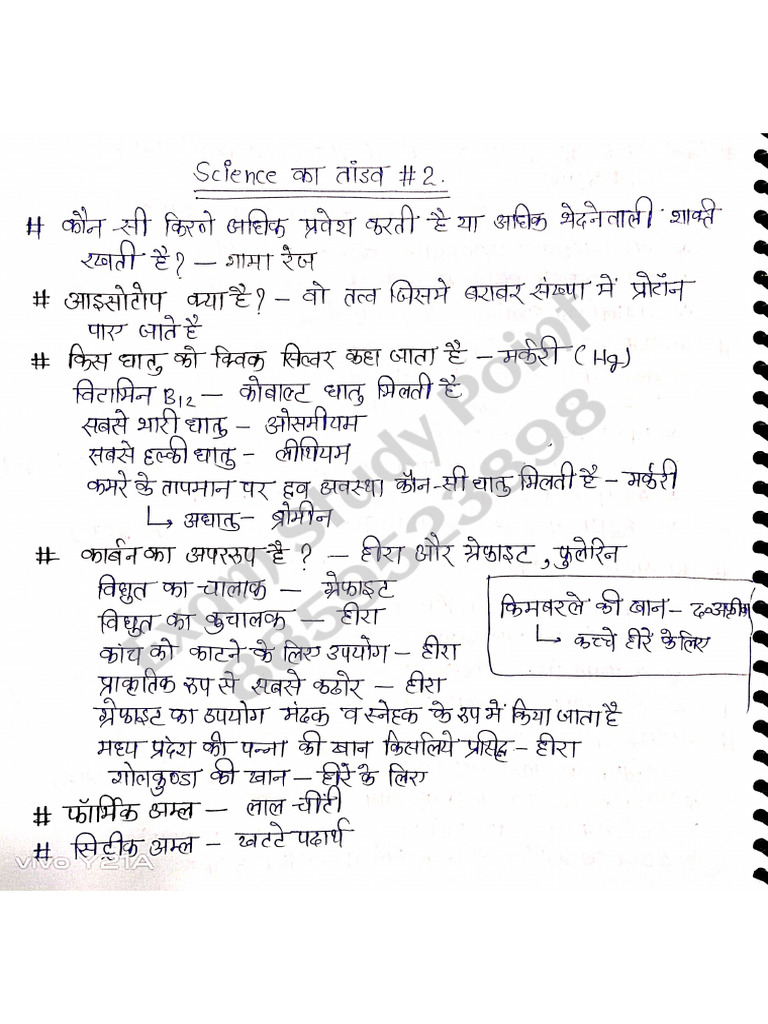 Science का तांडव #2.
# कौन-सी किरणे अधिक प्रवेश करती है या अधिक भेदनेवाली शक्ति
रखती है? – गामा रेज
# आइसोटोप क्या है? – वो तत्व जिसमे बराबर संख्या में प्रोटॉन
पाए जाते है
# किस धातु को क्विक सिल्वर कहा जाता है – मर्करी (Hg)
विटामिन B12 – कोबाल्ट धातु मिलती है
सबसे भारी धातु – ओसमीयम
सबसे हल्की धातु – लीथियम
कमरे के तापमान पर द्रव अवस्था कौन-सी धातु मिलती है – मर्करी
↳ अधातु – ब्रोमीन
# कार्बन का अपररूप है? – हीरा और ग्रेफाइट, फुलेरिन
विधुत का चालाक – ग्रेफाइट
विधुत का कुचालक – हीरा
किमबरले की खान – द०अफ्रीका
↳ कच्चे हीरे के लिए
कांच को काटने के लिए उपयोग – हीरा
प्राकृतिक रूप से सबसे कठोर – हीरा
ग्रेफाइट का उपयोग मंदक व स्नेहक के रूप में किया जाता है
मध्य प्रदेश की पन्ना की खान किसलिये प्रसिद्ध – हीरा
गोलकुण्डा की खान – हीरे के लिए
# फॉर्मिक अम्ल – लाल चींटी
# सिट्रीक अम्ल – खटटे पदार्थ
Exam Study Point
8859523898
vivo Y21A